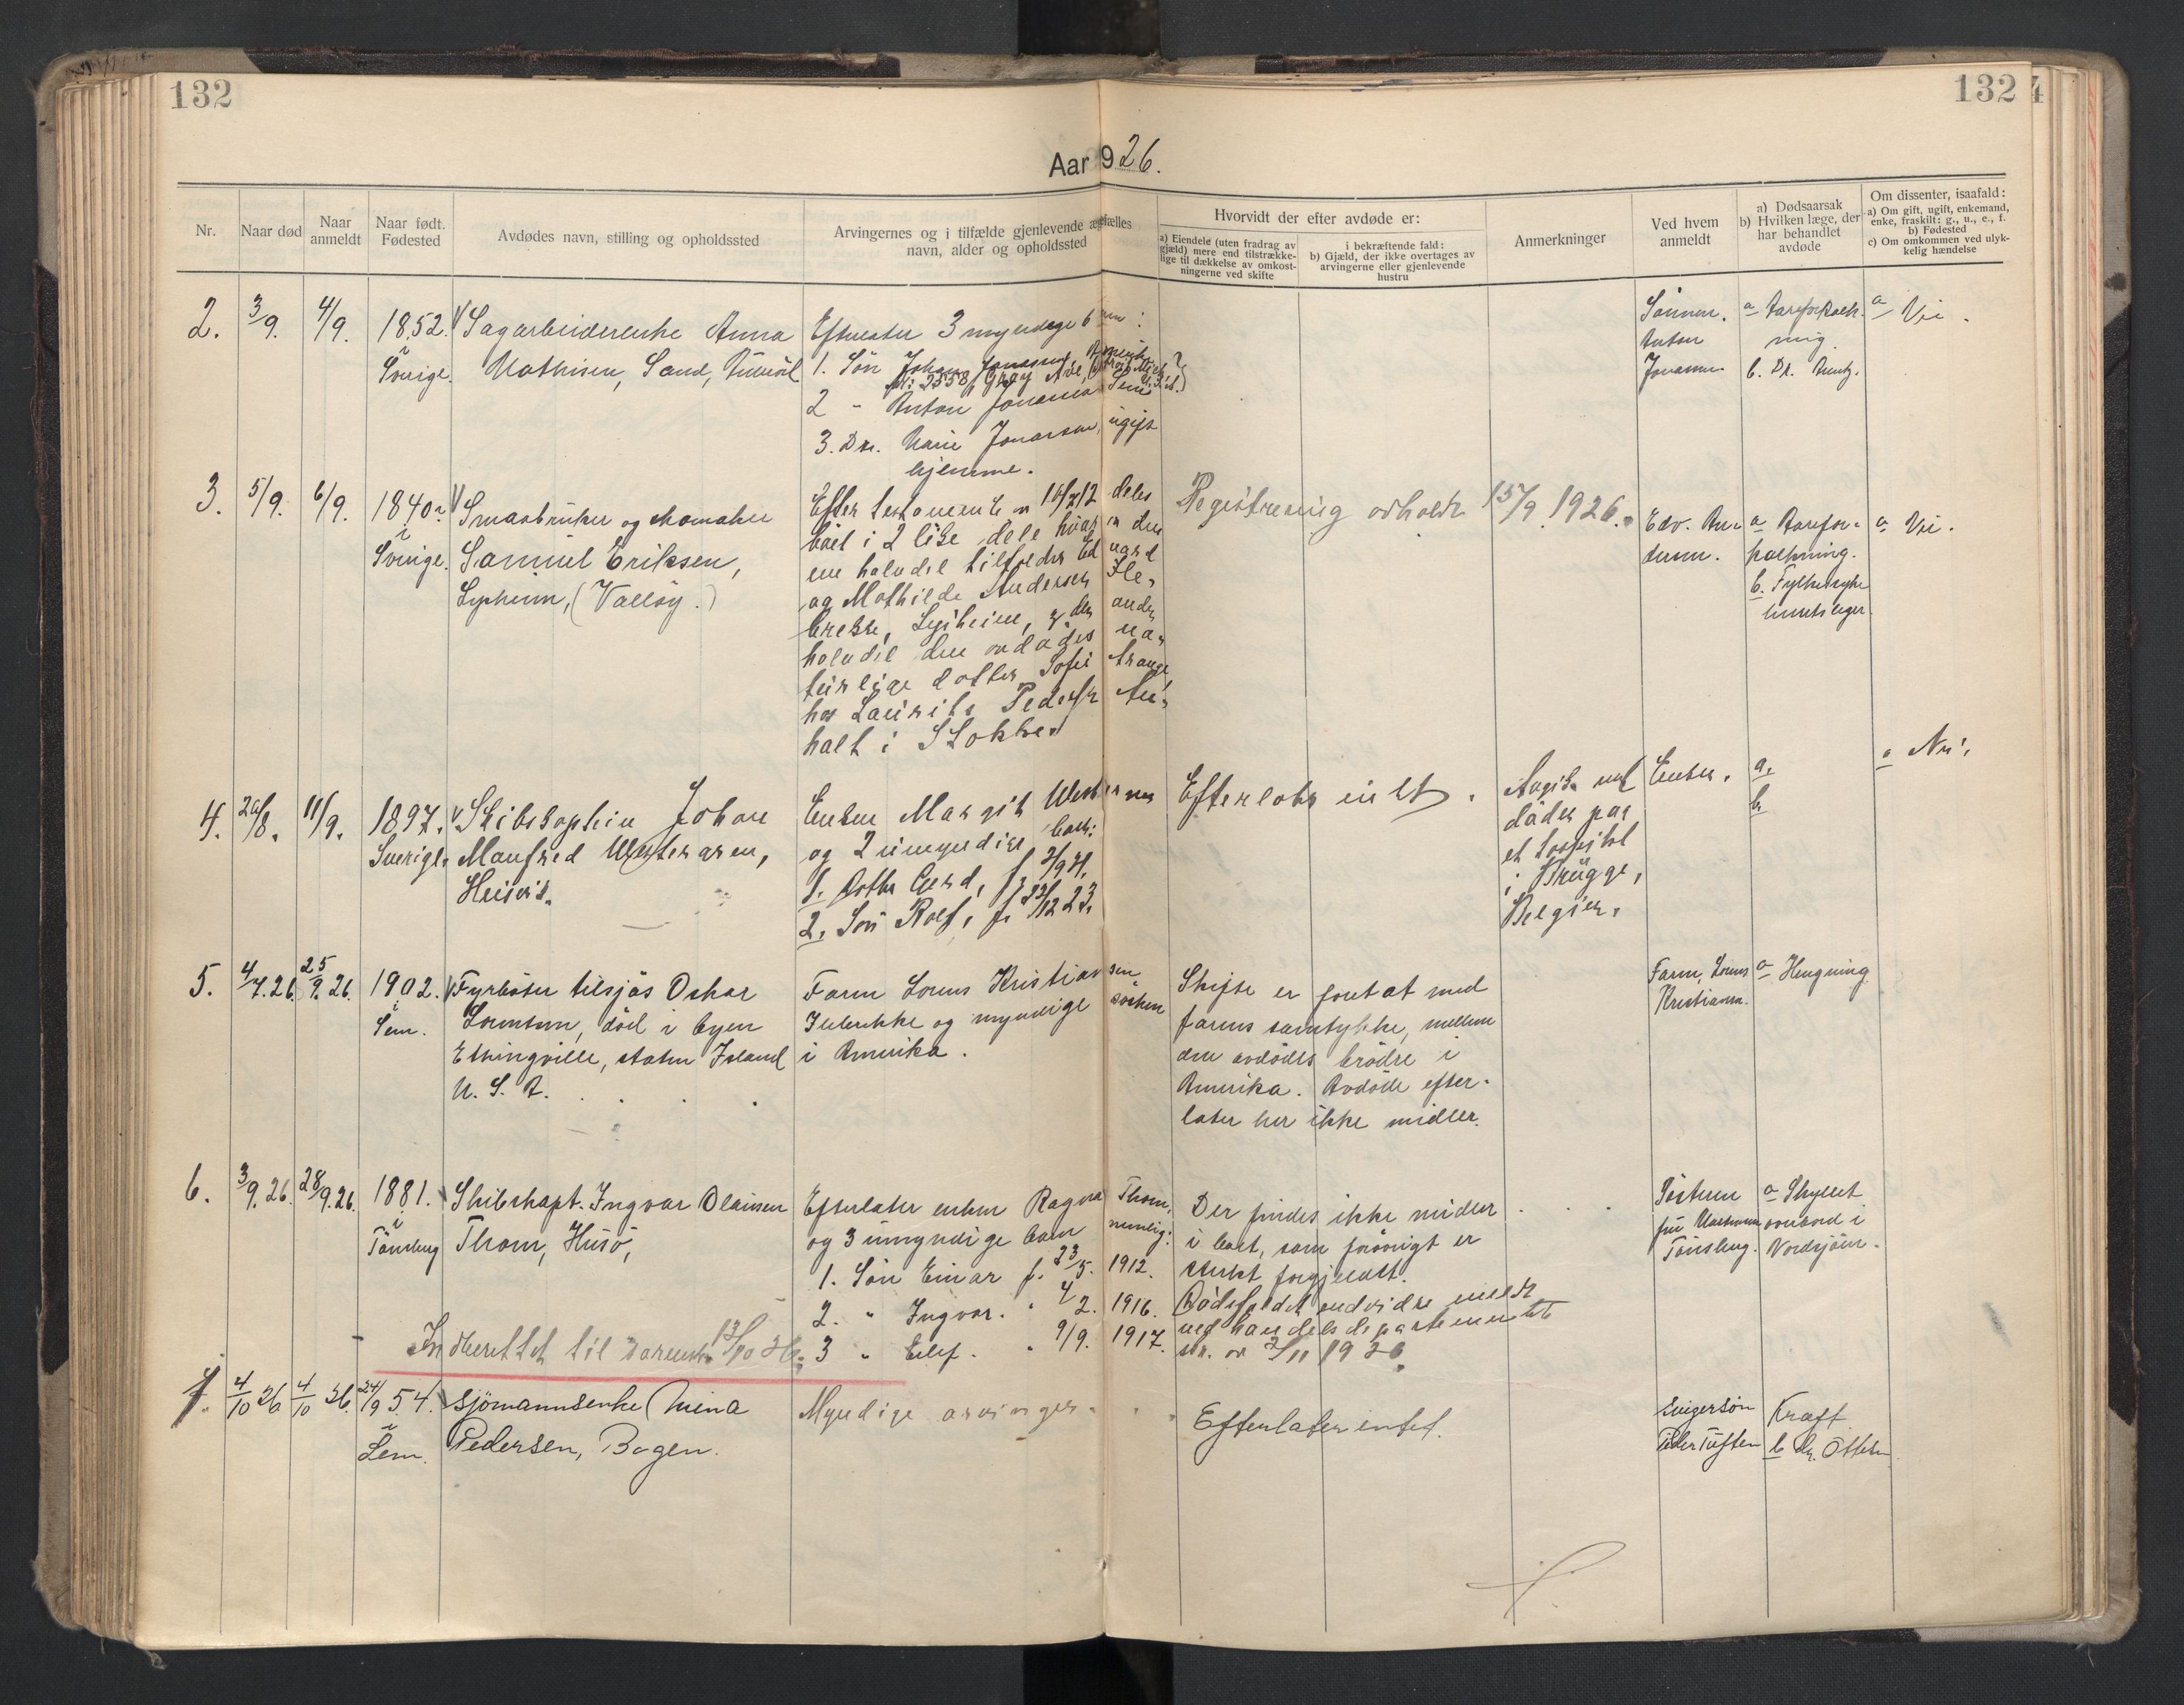 132
132
Aar 1926.
Nr.
Naar død
Naar anmeldt
Naar født. Fødested
Avdødes navn, stilling og opholdssted
Arvingernes og i tilfælde gjenlevende ægtefælles navn, alder og opholdssted
Hvorvidt der efter avdøde er:
a) Eiendele (uten fradrag av gjæld) mere end tilstrække-lige til dækkelse av omkost-ningerne ved skifte
i bekræftende fald: b) Gjæld, der ikke overtages av arvingerne eller gjenlevende hustru
Anmerkninger
Ved hvem anmeldt
a) Dødsaarsak b) Hvilken læge, der har behandlet avdøde
Om dissenter, isaafald: a) Om gift, ugift, enkemand, enke, fraskilt: g., u., e., f. b) Fødested c) Om omkommen ved ulyk-kelig hændelse
2. 3/9. 4/9. 1852. i Sverige.
Sagarbeiderenke Anna
Mathisen, Sand,
Efterlater 3 myndige barn:
1. Søn Johan Jonassen, Amerika
Nr. 2558 Gray Ave, Detroit Mich.
2 - Anton Jonassen Sem
3. Dtr. Marie Jonassen, ugift
hjemme.
Sönnen.
Anton
Jonassen.
a
b. Dr.
a
3. 5/9. 6/9. 1840. i Sverige.
Smaabruker og skomaker
Samuel Eriksen,
Lysheim, (Vallöy.)
Efter testamente av 16/2 12 deles
boet i 2 like dele hvorav den
ene halvdel tilfalder Edvard
og Mathilde Andersen Ile-
brekke, Lysheim, og den anden
halvdel den avdödes na-
turlige datter Sofie Strange
hos Laurits Pedersen Au-
halt i Stokke.
Registrering avholdt 15/9. 1926.
Edv. An-
dersen.
a Aarefor-
kalkning.
b. Fylkessyke-
husets læger.
a
4. 20/8. 11/9. 1897. Sverige.
Skibskaptein Johan
Manfred Westergren,
Husvik.
Enken Margit Westergren
og 2 umyndige barn:
1. Datter Gerd, f. 2/9 21.
2. Søn Rolf, f. 23/12 23.
Efterlater intet.
Angis. ved
döden paa
et hospital
i Brügge,
Belgien.
Enken.
a.
b.
a Nei.
5. 4/7.26. 25/9.26. 1902. i Sem.
Fyrböter tilsjös Oskar
Lorentsen, död i byen
Eltingville, staten Island
U. S. A.
Farm Lorens Kristiansen
Ilebrekke og myndige söskend
i Amerika.
Skifte er foretat med
farens samtykke, mellem
den avdödes brödre i
Amerika. Avdöde efter-
later her ikke midler.
Faren, Lorens
Kristiansen.
a Hengning
6. 3/9.26. 28/9.26. 1881. i Tönsberg
Skibskapt. Ingvar Olaussen
Thom, Husö,
Efterlater enken Ragna Thom,
og 3 umyndige barn nemlig:
1. Søn Einar f. 23/5. 1912.
2. " Ingvar. " 4/2. 1916.
3 " Eilif. " 9/9. 1917.
Der findes ikke midler
i boet, som forövrigt er
sterkt forgjældet.
Dödsfaldet endvidre meldt
ved handelsdepartementets
skr. av 2/11 1926.
Sösteren
fru
Tönsberg.
a Skyllet
overbord i
Nordsjöen.
Indberettet til 13/10 26.
7. 4/10 26 4/10 26. 24/9 54. i Sem.
Sjömannsenke Mina
Pedersen, Bogen.
Myndige arvinger.
Efterlater intet.
Svigersön
Peder Tuften
Kræft
b Dr.